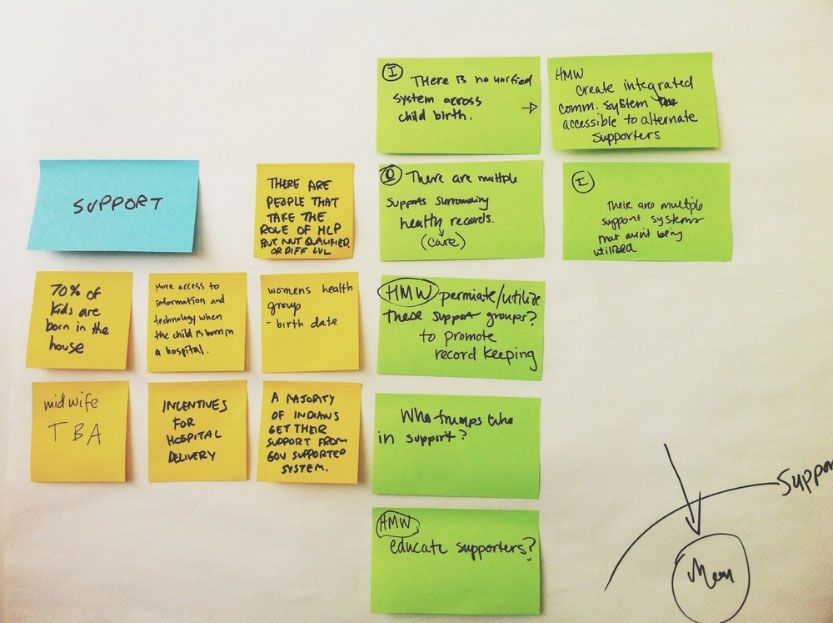 SUPPORT
THERE ARE
PEOPLE THAT
TAKE THE
ROLE OF HLP
BUT NOT QUALIFIED
OR DIFF LVL
70% of
kids are
born in the
house
More access to
information and
technology when
the child is born in
a hospital.
womens health
group
- birth date
midwife
TBA
INCENTIVES
FOR
HOSPITAL
DELIVERY
A MAJORITY
OF INDIANS
GET THEIR
SUPPORT FROM
GOV SUPPORTED
SYSTEM.
I There is no unified
system across →
child birth.
HMW
create integrated
comm. system
accessible to alternate
supporters
There are multiple
supports surrounding
health records.
(care)
I
Their are multiple
support systems
that aren't being
utilized
HMW permiate/utilize
these support groups?
to promote
record keeping
Who trumps who
in support?
HMW
educate supporters?
Suppor
Mom